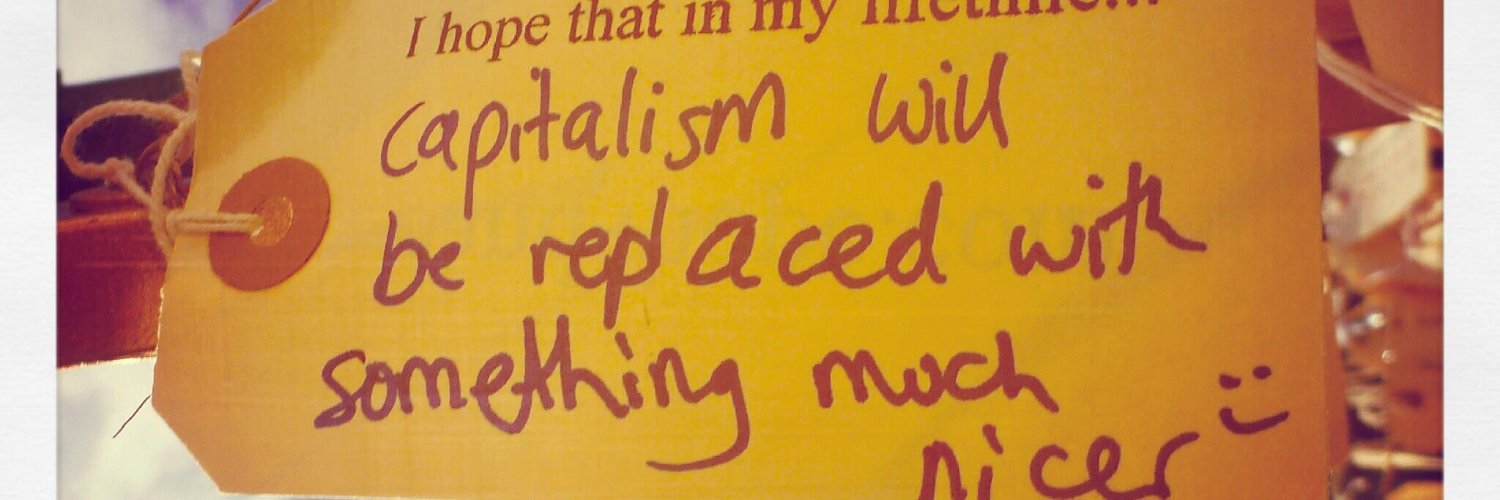 I hope that in my lifetime...
capitalism will
be replaced with
something much
nicer :)